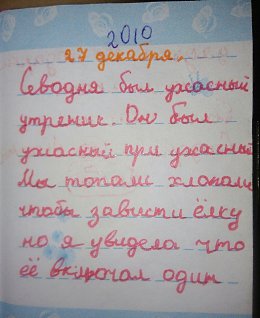 2010
27 декабря.
Севодня был ужасный
утреник. Он был
ужасный при ужасный
Мы топали хлопали
чтобы зависти ёлку
но я увидела что
её включал один